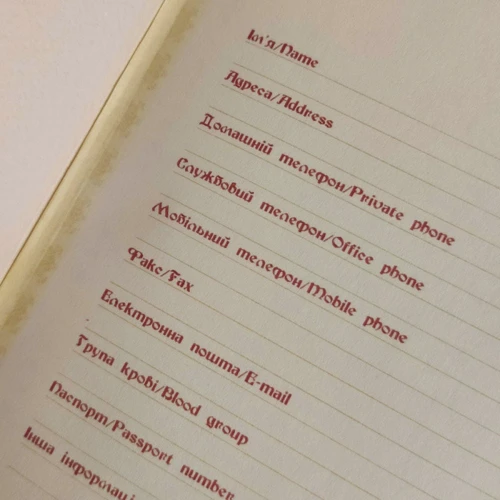 Ім'я/Name
Адреса/Address
Домашній телефон/Private phone
Службовий телефон/Office phone
Мобільний телефон/Mobile phone
Факс/Fax
Електронна пошта/E-mail
Група крові/Blood group
Паспорт/Passport number
Інша